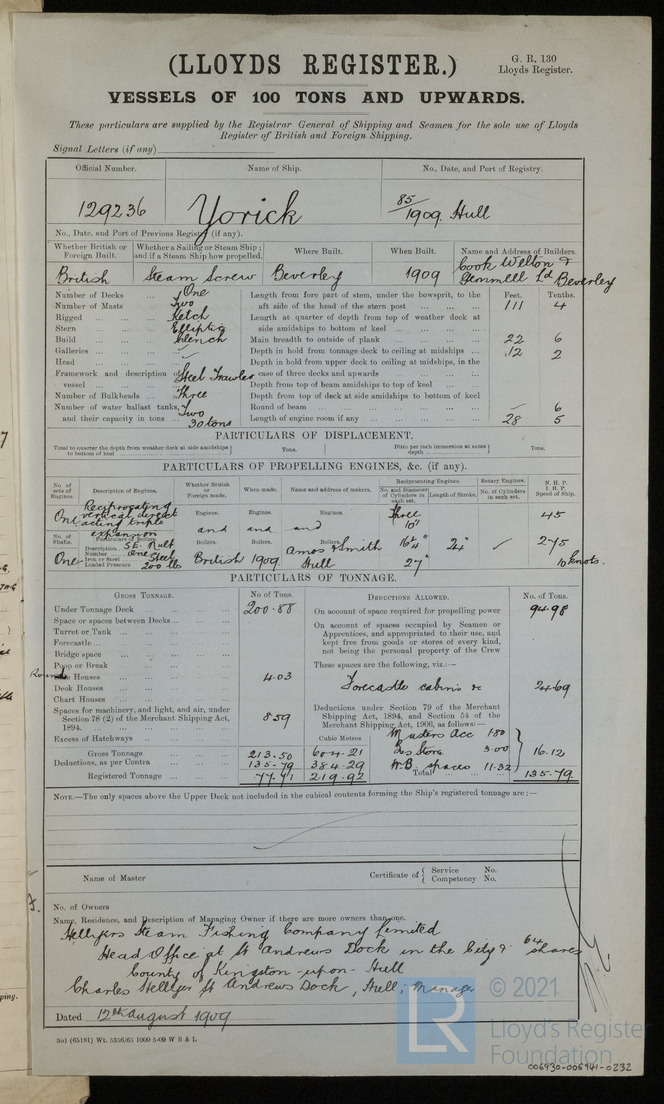 (LLOYDS REGISTER.)
G. R. 130
Lloyds Register.
VESSELS OF 100 TONS AND UPWARDS.
These particulars are supplied by the Registrar General of Shipping and Seamen for the sole use of Lloyds
Register of British and Foreign Shipping.
Signal Letters (if any)
Official Number. Name of Ship. No., Date, and Port of Registry.
129236 Yorick 85/1909 Hull
No., Date, and Port of Previous Registry (if any).
Whether British or Foreign Built. Whether a Sailing or Steam Ship; and if a Steam Ship how propelled. Where Built. When Built. Name and Address of Builders.
British Steam Screw Beverley 1909 Cook Welton & Gemmell Ld Beverley
Number of Decks One
Number of Masts Two
Rigged Ketch
Stern Elliptic
Build Clench
Galleries
Head
Framework and description of vessel Steel Trawler
Number of Bulkheads Three
Number of water ballast tanks, and their capacity in tons Two 30 tons
Feet. Tenths.
Length from fore part of stem, under the bowsprit, to the aft side of the head of the stern post 111 4
Length at quarter of depth from top of weather deck at side amidships to bottom of keel
Main breadth to outside of plank 22 6
Depth in hold from tonnage deck to ceiling at midships 12 2
Depth in hold from upper deck to ceiling at midships, in the case of three decks and upwards
Depth from top of beam amidships to top of keel
Depth from top of deck at side amidships to bottom of keel
Round of beam 6
Length of engine room if any 28 5
PARTICULARS OF DISPLACEMENT.
Total to quarter the depth from weather deck at side amidships to bottom of keel Tons. Ditto per inch immersion at same depth Tons.
PARTICULARS OF PROPELLING ENGINES, &c. (if any).
No. of sets of Engines. Description of Engines. Whether British or Foreign made. When made. Name and address of makers. Reciprocating Engines. Rotary Engines. N. H. P. I. H. P. Speed of Ship.
No. and Diameter of Cylinders in each set. Length of Stroke. No. of Cylinders in each set.
One Reciprocating vertical direct acting triple expansion
Engines. Engines. Engines. Three 10" 45
No. of Shafts. Particulars of Boilers. and and and
Description S.E. Mult
Number One
Iron or Steel Steel
Loaded Pressure 200 lbs
Boilers. Boilers. Boilers. 16 1/4" 24" 275
One British 1909 Amos & Smith Hull 27" 10 knots.
PARTICULARS OF TONNAGE.
GROSS TONNAGE. No of Tons. DEDUCTIONS ALLOWED. No. of Tons.
Under Tonnage Deck 200.88
Space or spaces between Decks
Turret or Tank
Forecastle
Bridge space
Poop or Break
Houses 4.03
Deck Houses
Chart Houses
Spaces for machinery, and light, and air, under Section 78 (2) of the Merchant Shipping Act, 1894. 8.59
Excess of Hatchways
Cubic Metres
Gross Tonnage 213.50 604.21
Deductions, as per Contra 135.79 384.29
Registered Tonnage 77.71 219.92
On account of space required for propelling power 94.98
On account of spaces occupied by Seamen or Apprentices, and appropriated to their use, and kept free from goods or stores of every kind, not being the personal property of the Crew
These spaces are the following, viz.:—
Forecastle cabins &c 24.69
Deductions under Section 79 of the Merchant Shipping Act, 1894, and Section 54 of the Merchant Shipping Act, 1906, as follows:—
Masters Acc 1.80
Bs Store 3.00 16.12
W.B. spaces 11.32
Total 135.79
NOTE.—The only spaces above the Upper Deck not included in the cubical contents forming the Ship's registered tonnage are:—
Name of Master Certificate of { Service No. Competency No.
No. of Owners
Name, Residence, and Description of Managing Owner if there are more owners than one.
Hellyers Steam Fishing Company Limited
Head Office at St Andrews Dock in the City & 64 shares
County of Kingston-upon-Hull
Charles Hellyer St Andrews Dock, Hull; Manager
Dated 12th August 1909
(65181) Wt. 5356/65 1000 5-09 W B & L
© 2021
LR
Lloyd's Register
Foundation
006930-006941-0232